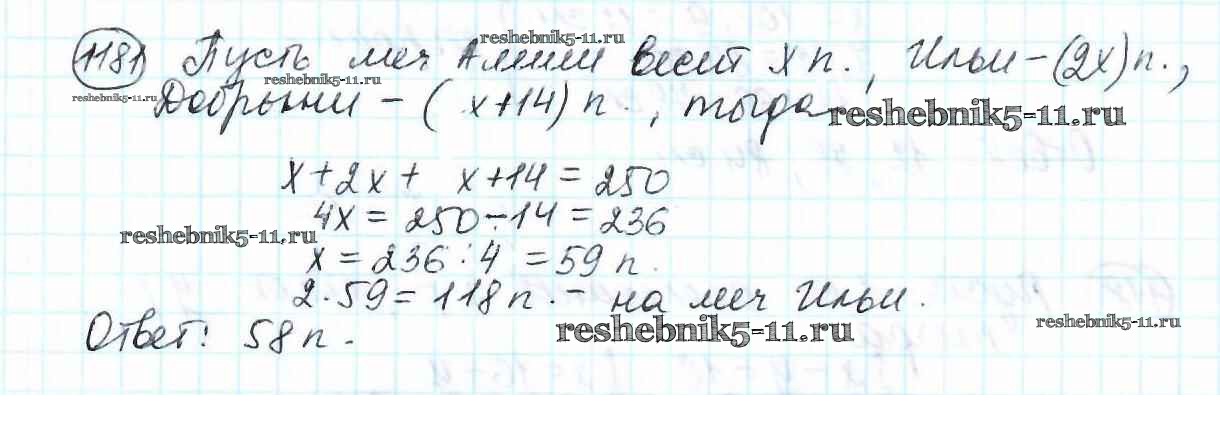 reshebnik5-11.ru
1181 Пусть меч Алеши весит x п., Ильи - (2x) п.,
reshebnik5-11.ru
reshebnik5-11.ru
Добрыни - ( x+14) п., тогда
reshebnik5-11.ru
x+2x+ x+14 = 250
4x = 250-14 = 236
reshebnik5-11.ru
x = 236 : 4 = 59 п.
2·59 = 118 п. - на меч Ильи.
reshebnik5-11.ru
reshebnik5-11.ru
Ответ: 58 п.